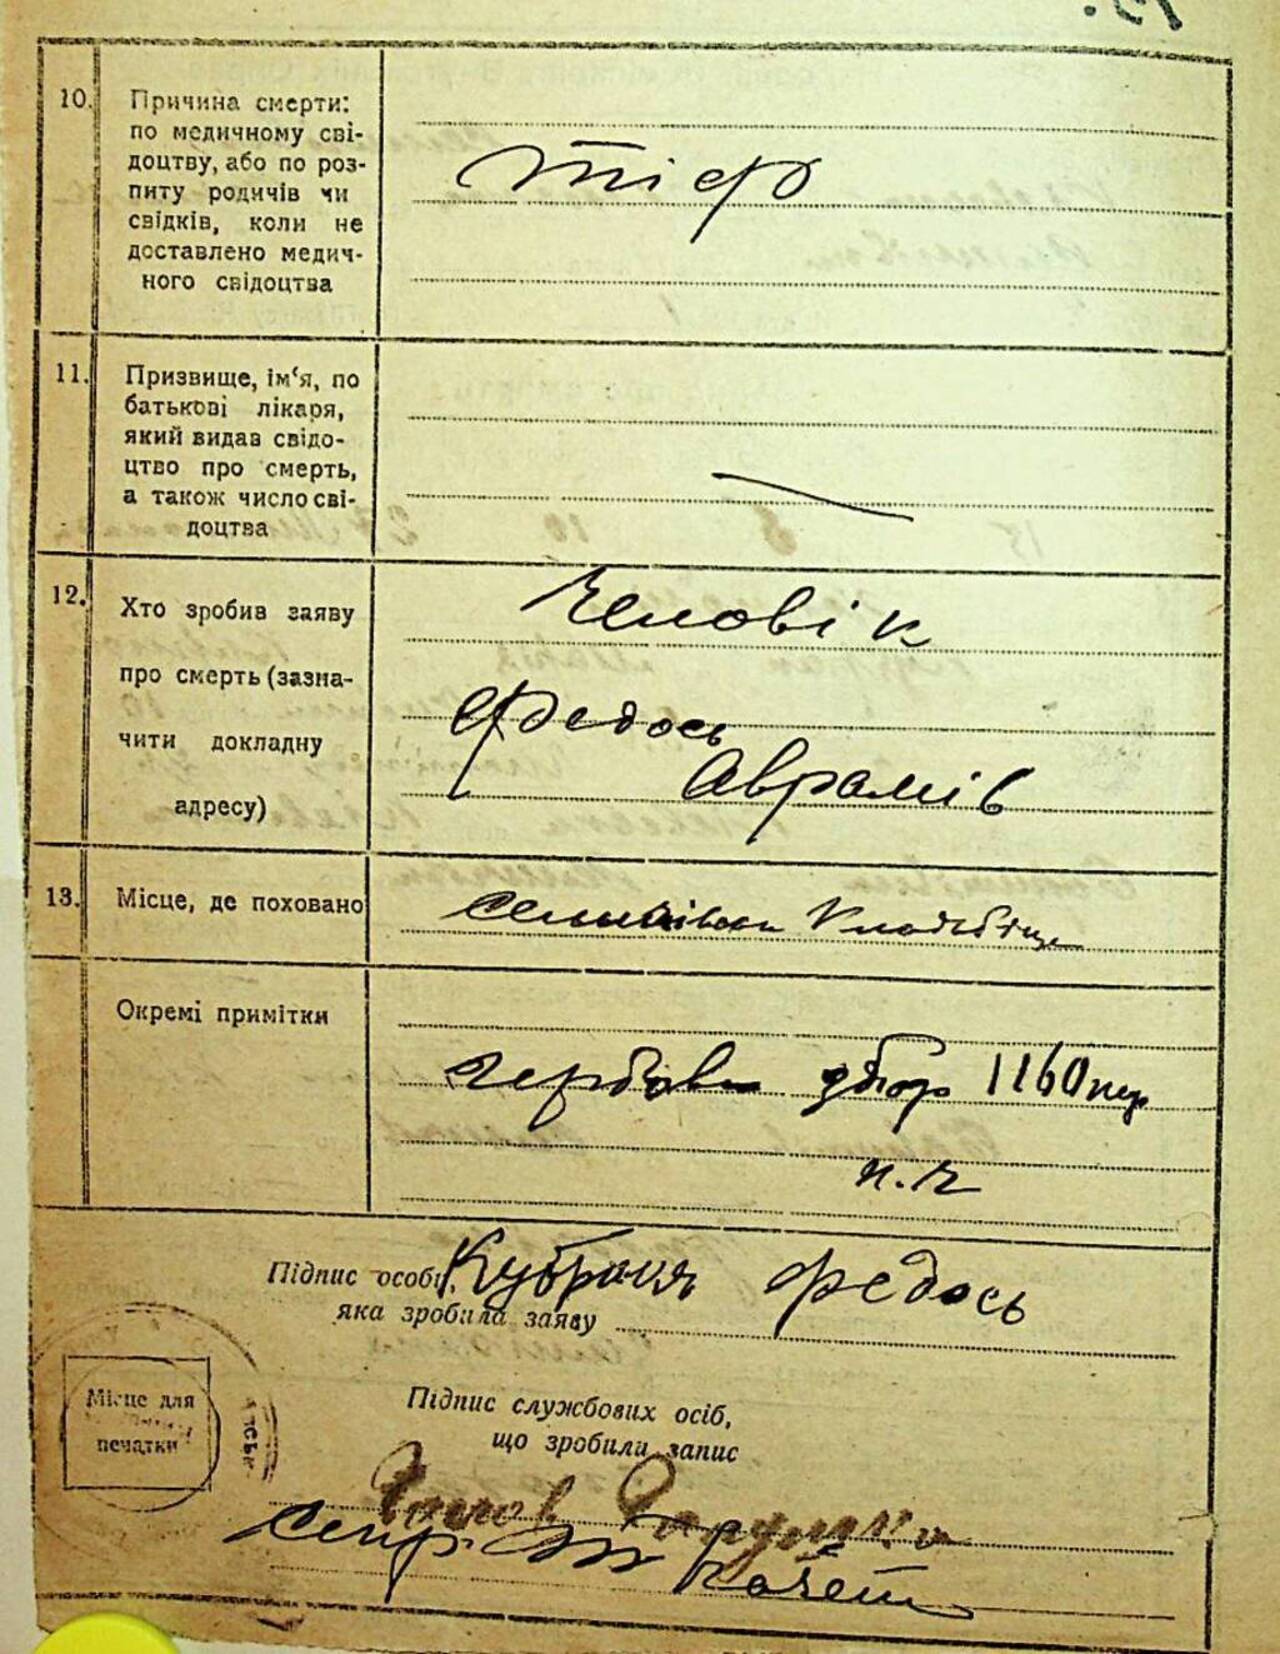 10. Причина смерти:
по медичному сві-
доцтву, або по роз-
питу родичів чи
свідків, коли не
доставлено медич-
ного свідоцтва
тіф
11. Призвище, ім'я, по
батькові лікаря,
який видав свідо-
цтво про смерть,
а також число сві-
доцтва
12. Хто зробив заяву
про смерть (зазна-
чити докладну
адресу)
Человік
Федось
Аврамів
13. Місце, де поховано
Кладбіще
Окремі примітки
гербови збюр 1160
н.г
Підпис особи,
яка зробила заяву
Кубрак Федось
Місце для
печатки
Підпис службових осіб,
що зробили запис
Голов
Секр.